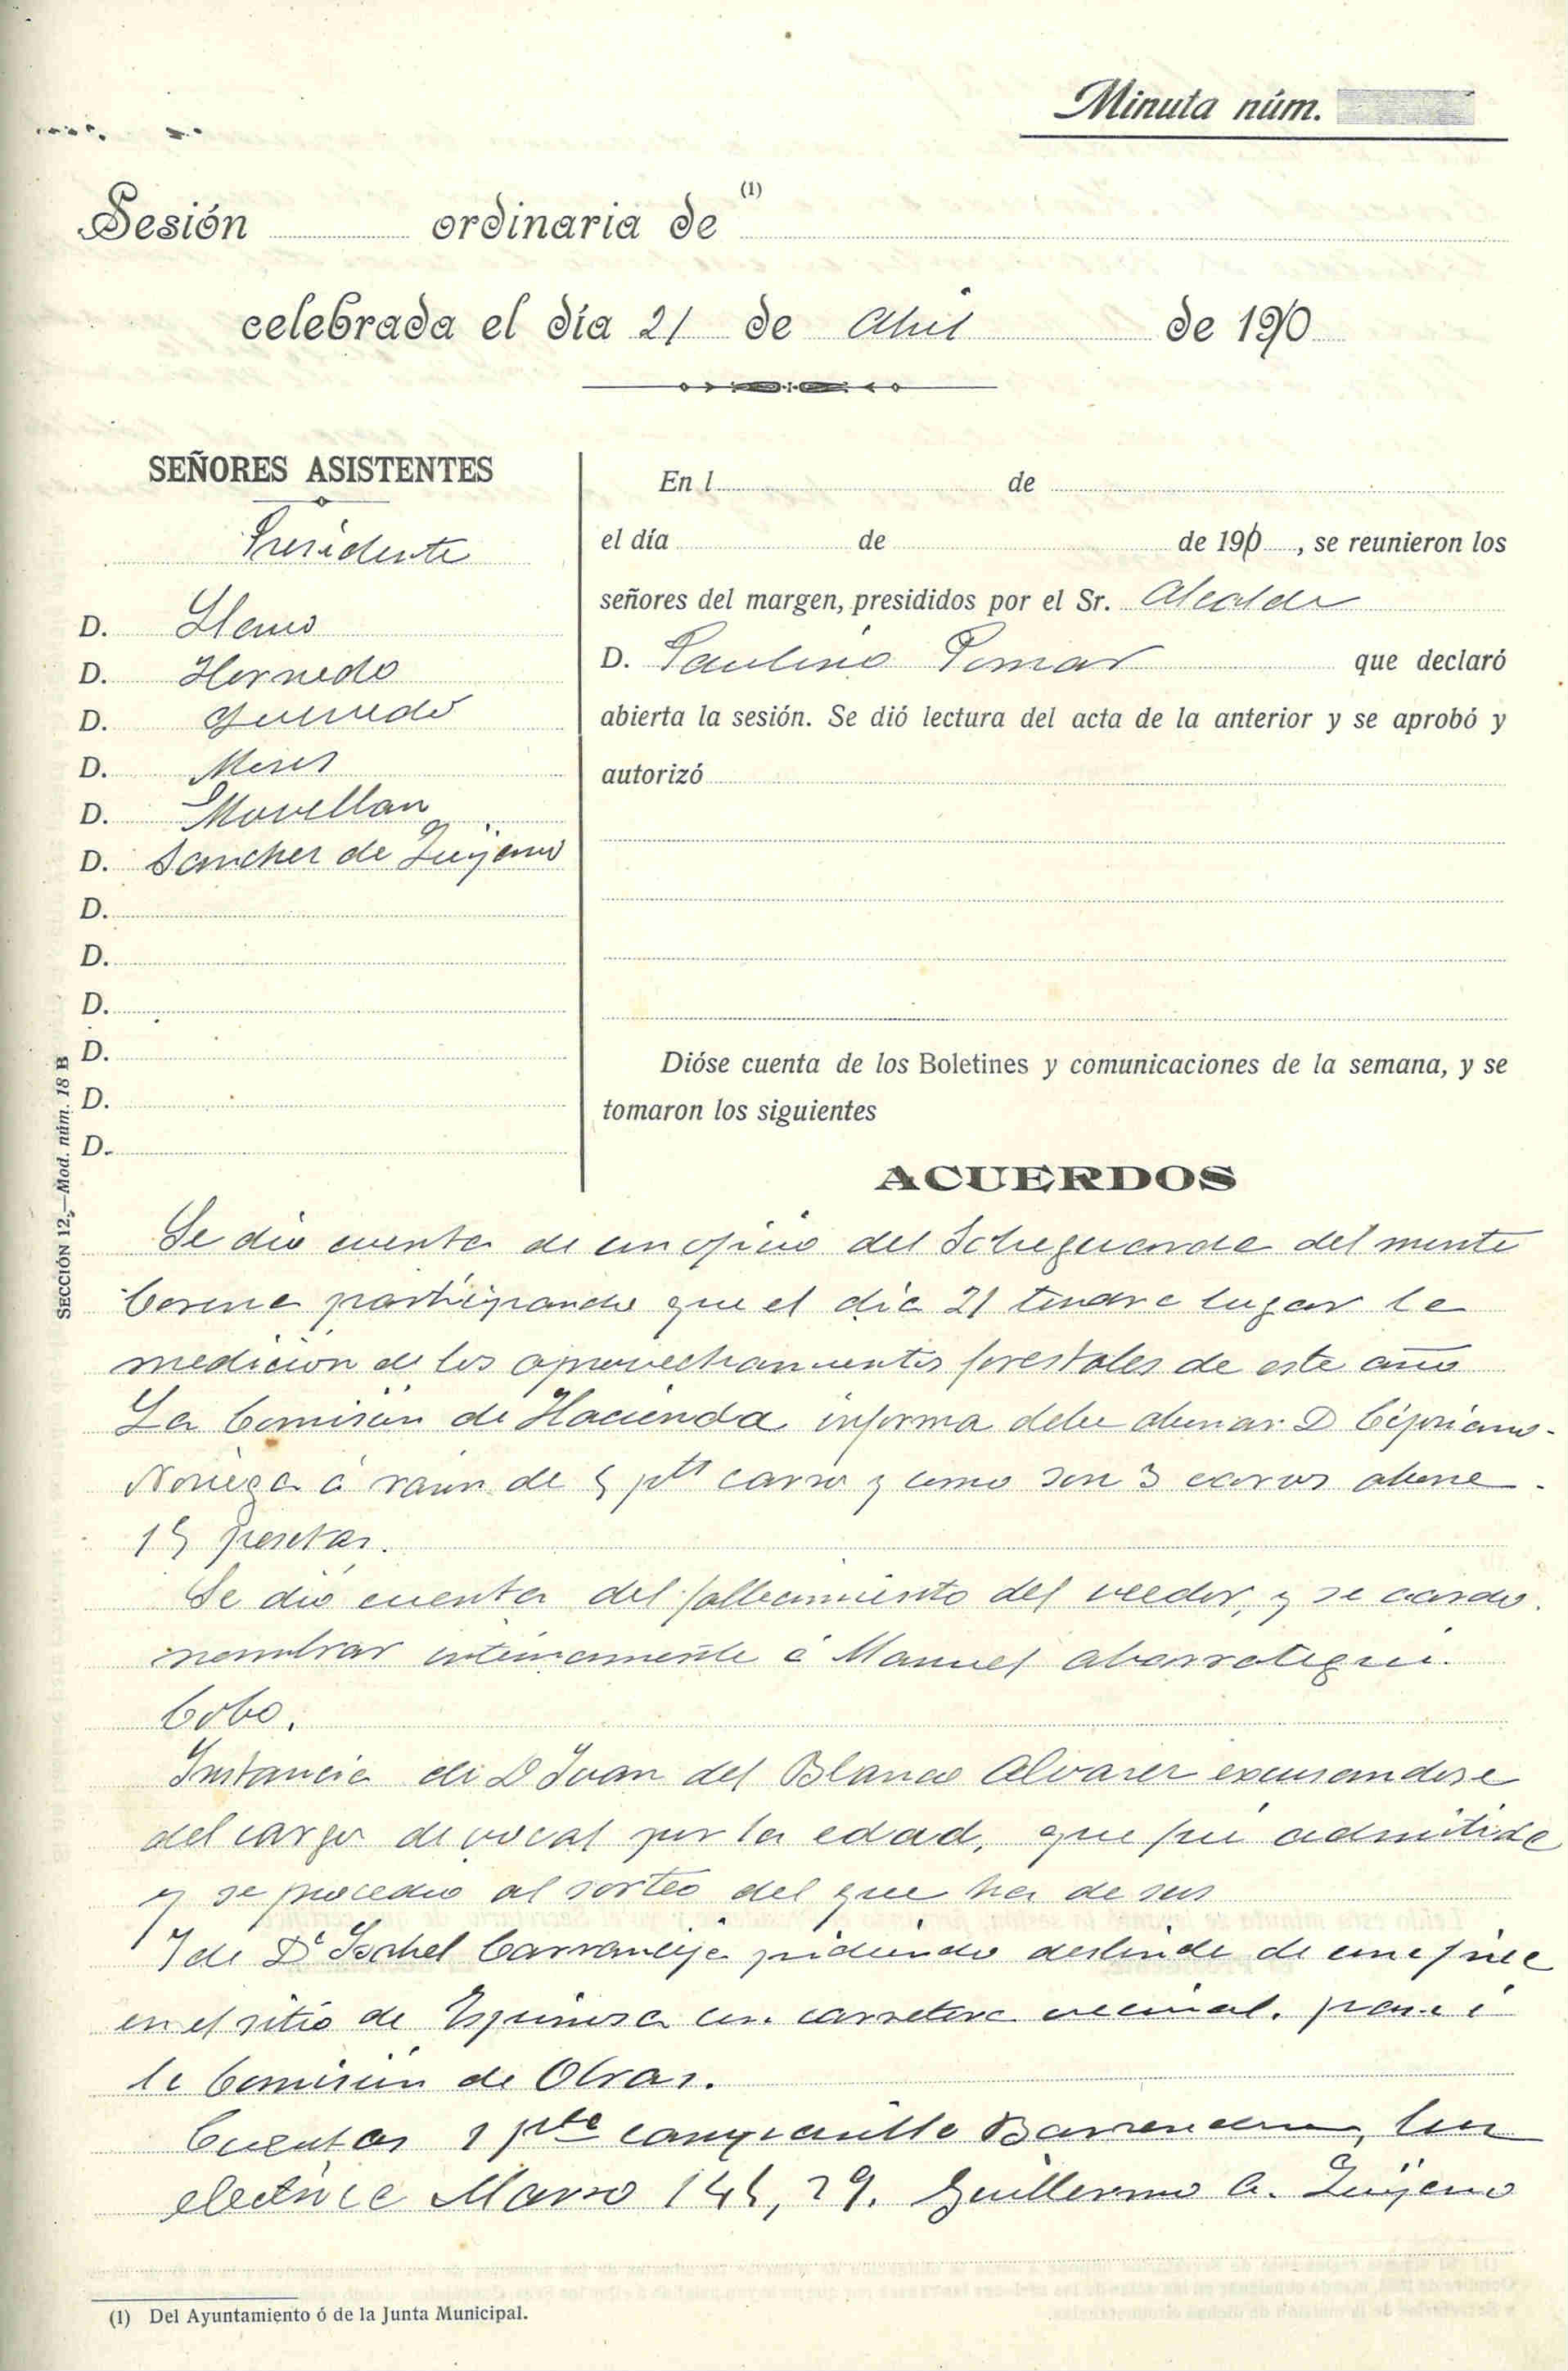 Minuta núm.
Sesión ordinaria de (1)
celebrada el día 21 de Abril de 1910
SEÑORES ASISTENTES
Presidente
D. Llano
D. Hornedo
D. Quevedo
D. Meses
D. Movellan
D. Sanchez de Güijano
D.
D.
D.
D.
D.
D.
En l de
el día de de 190 , se reunieron los
señores del margen, presididos por el Sr. Alcalde
D. Paulino Pomar que declaró
abierta la sesión. Se dió lectura del acta de la anterior y se aprobó y
autorizó
Dióse cuenta de los Boletines y comunicaciones de la semana, y se
tomaron los siguientes
ACUERDOS
Se dio cuenta de un oficio del Sobreguarda del monte
Corona participando que el dia 21 tendra lugar la
medicion de los aprovechamientos forestales de este año
La Comisión de Hacienda informa debe abonar D Cipriano
Noriega á razon de 5 pts carro y como son 3 carros abone
15 pesetas.
Se dió cuenta del fallecimiento del veedor, y se acordo
nombrar interinamente á Manuel Abarrategui
Cobo.
Instancia de D Juan del Blanco Alvarez excusandose
del cargo de vocal por la edad, que fué admitida
y se procedio al sorteo del que ha de ser
Y de Dª Isabel Carranceja pidiendo deslinde de una finca
en el sitio de Espinosa con carretera vecinal. pase á
la Comisión de Obras.
Cuentas 1 pta campanilla Barrendero, Luz
electrica Marzo 145,29. Guillermo G. Güijano
SECCIÓN 12.—Mod. núm. 18 B
(1) Del Ayuntamiento ó de la Junta Municipal.